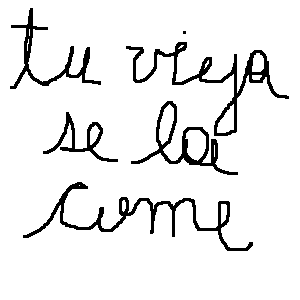 tu vieja
se loe
come